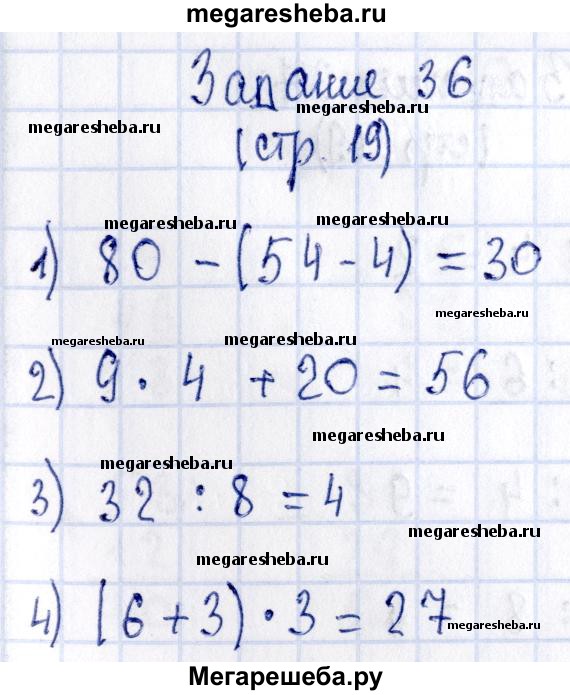 megaresheba.ru
Задание 36
megaresheba.ru
megaresheba.ru
(стр. 19)
megaresheba.ru
megaresheba.ru
1) 80 - (54 - 4) = 30
megaresheba.ru
megaresheba.ru
megaresheba.ru
2) 9 · 4 + 20 = 56
megaresheba.ru
megaresheba.ru
3) 32 : 8 = 4
megaresheba.ru
megaresheba.ru
4) (6 + 3) · 3 = 27
megaresheba.ru
Мегарешеба.ру